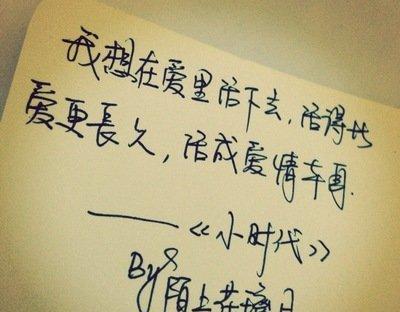 我想在爱里活下去,活得比
爱更長久,活成爱情本身.
——《小时代》
By
陌上花